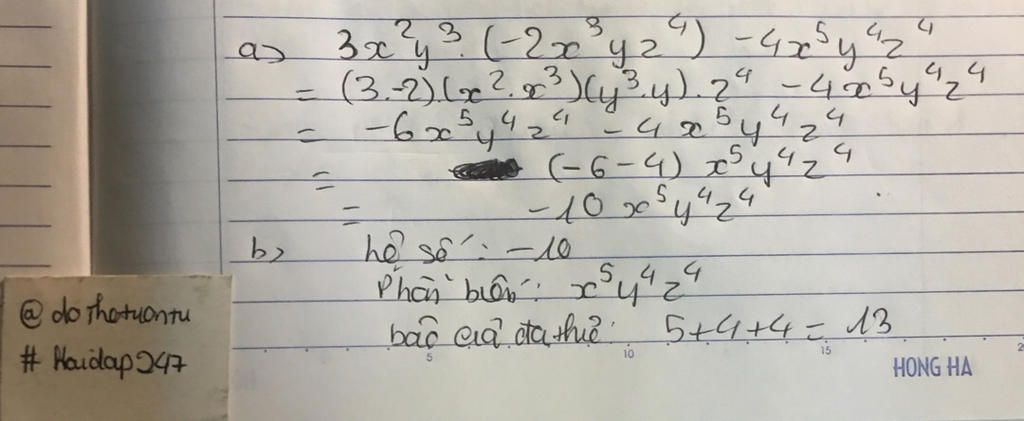 a) 3x²y³.(-2x³yz⁴) -4x⁵y⁴z⁴
= (3.-2).(x².x³)(y³.y).z⁴ -4x⁵y⁴z⁴
= -6x⁵y⁴z⁴ -4x⁵y⁴z⁴
= (-6-4) x⁵y⁴z⁴
= -10x⁵y⁴z⁴
b) hệ số: -10
Phần biến: x⁵y⁴z⁴
bậc của đa thức: 5+4+4=13
@dothotuontu
# Hoidap247
5 10 15 2
HONG HA